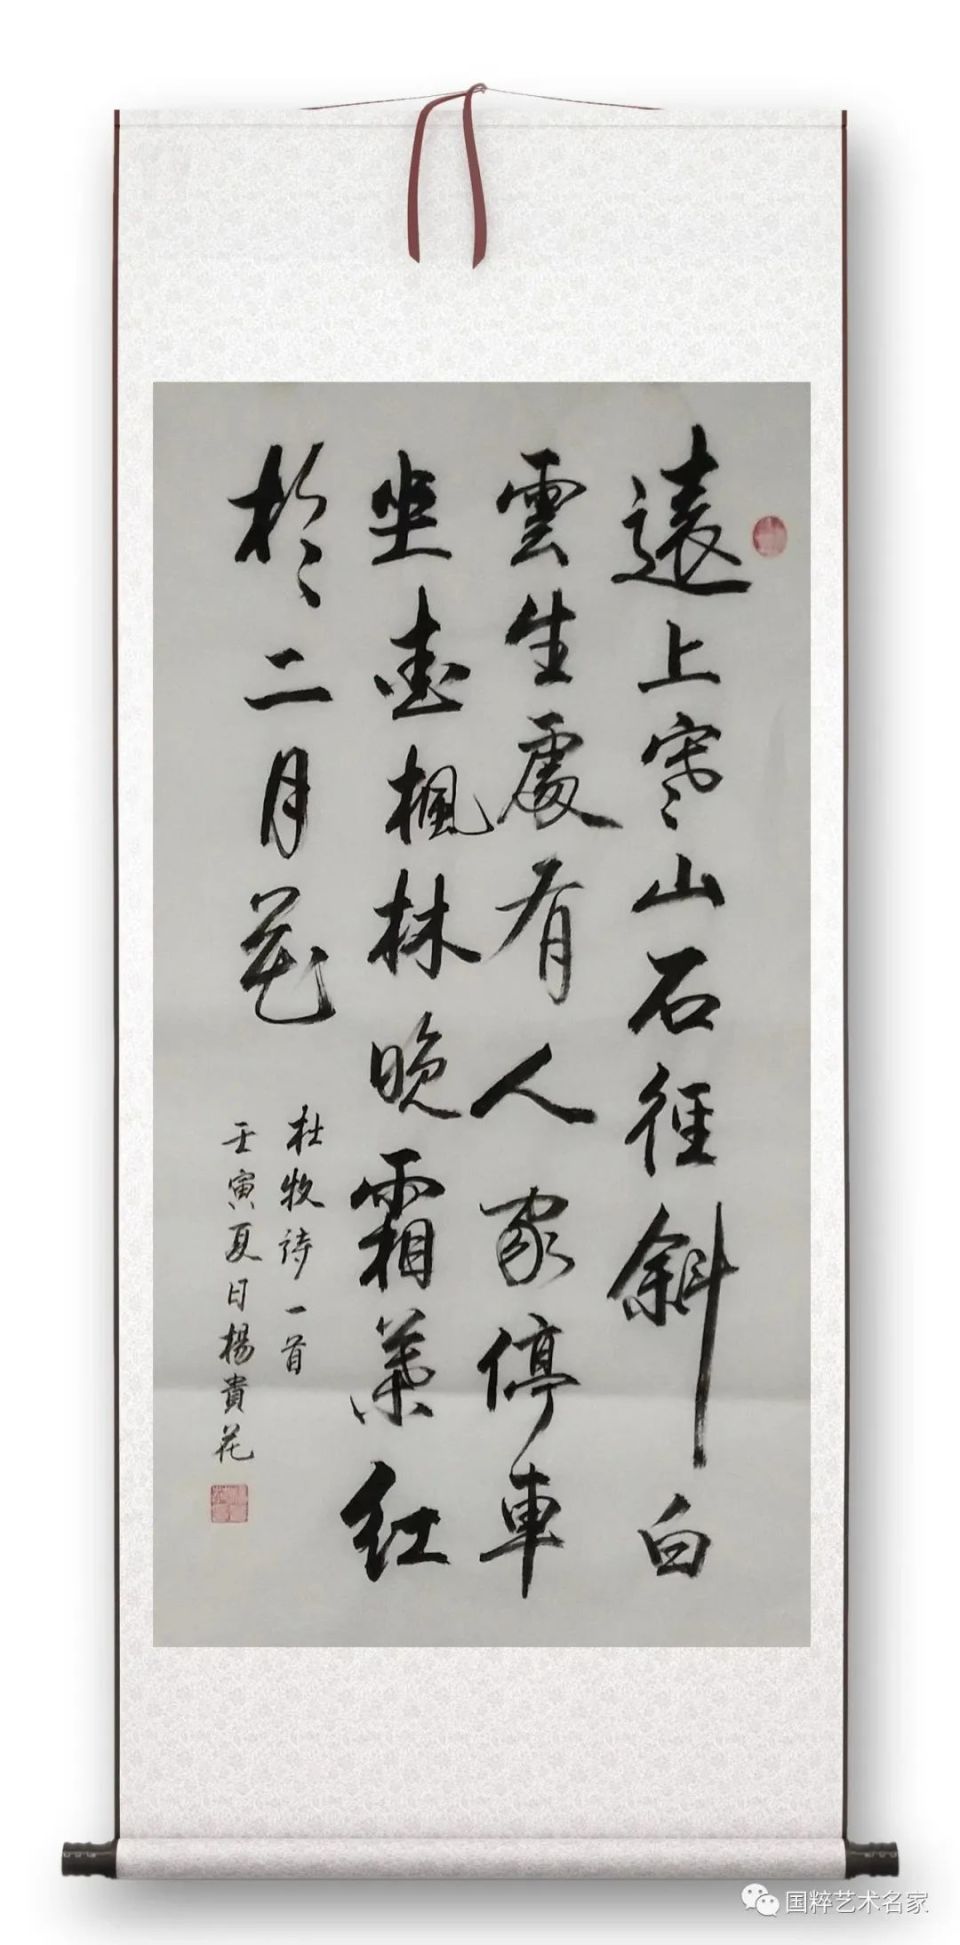 遠上寒山石徑斜白
雲生處有人家停車
坐愛楓林晚霜葉紅
於二月花
杜牧诗一首
壬寅夏日楊貴花
国粹艺术名家